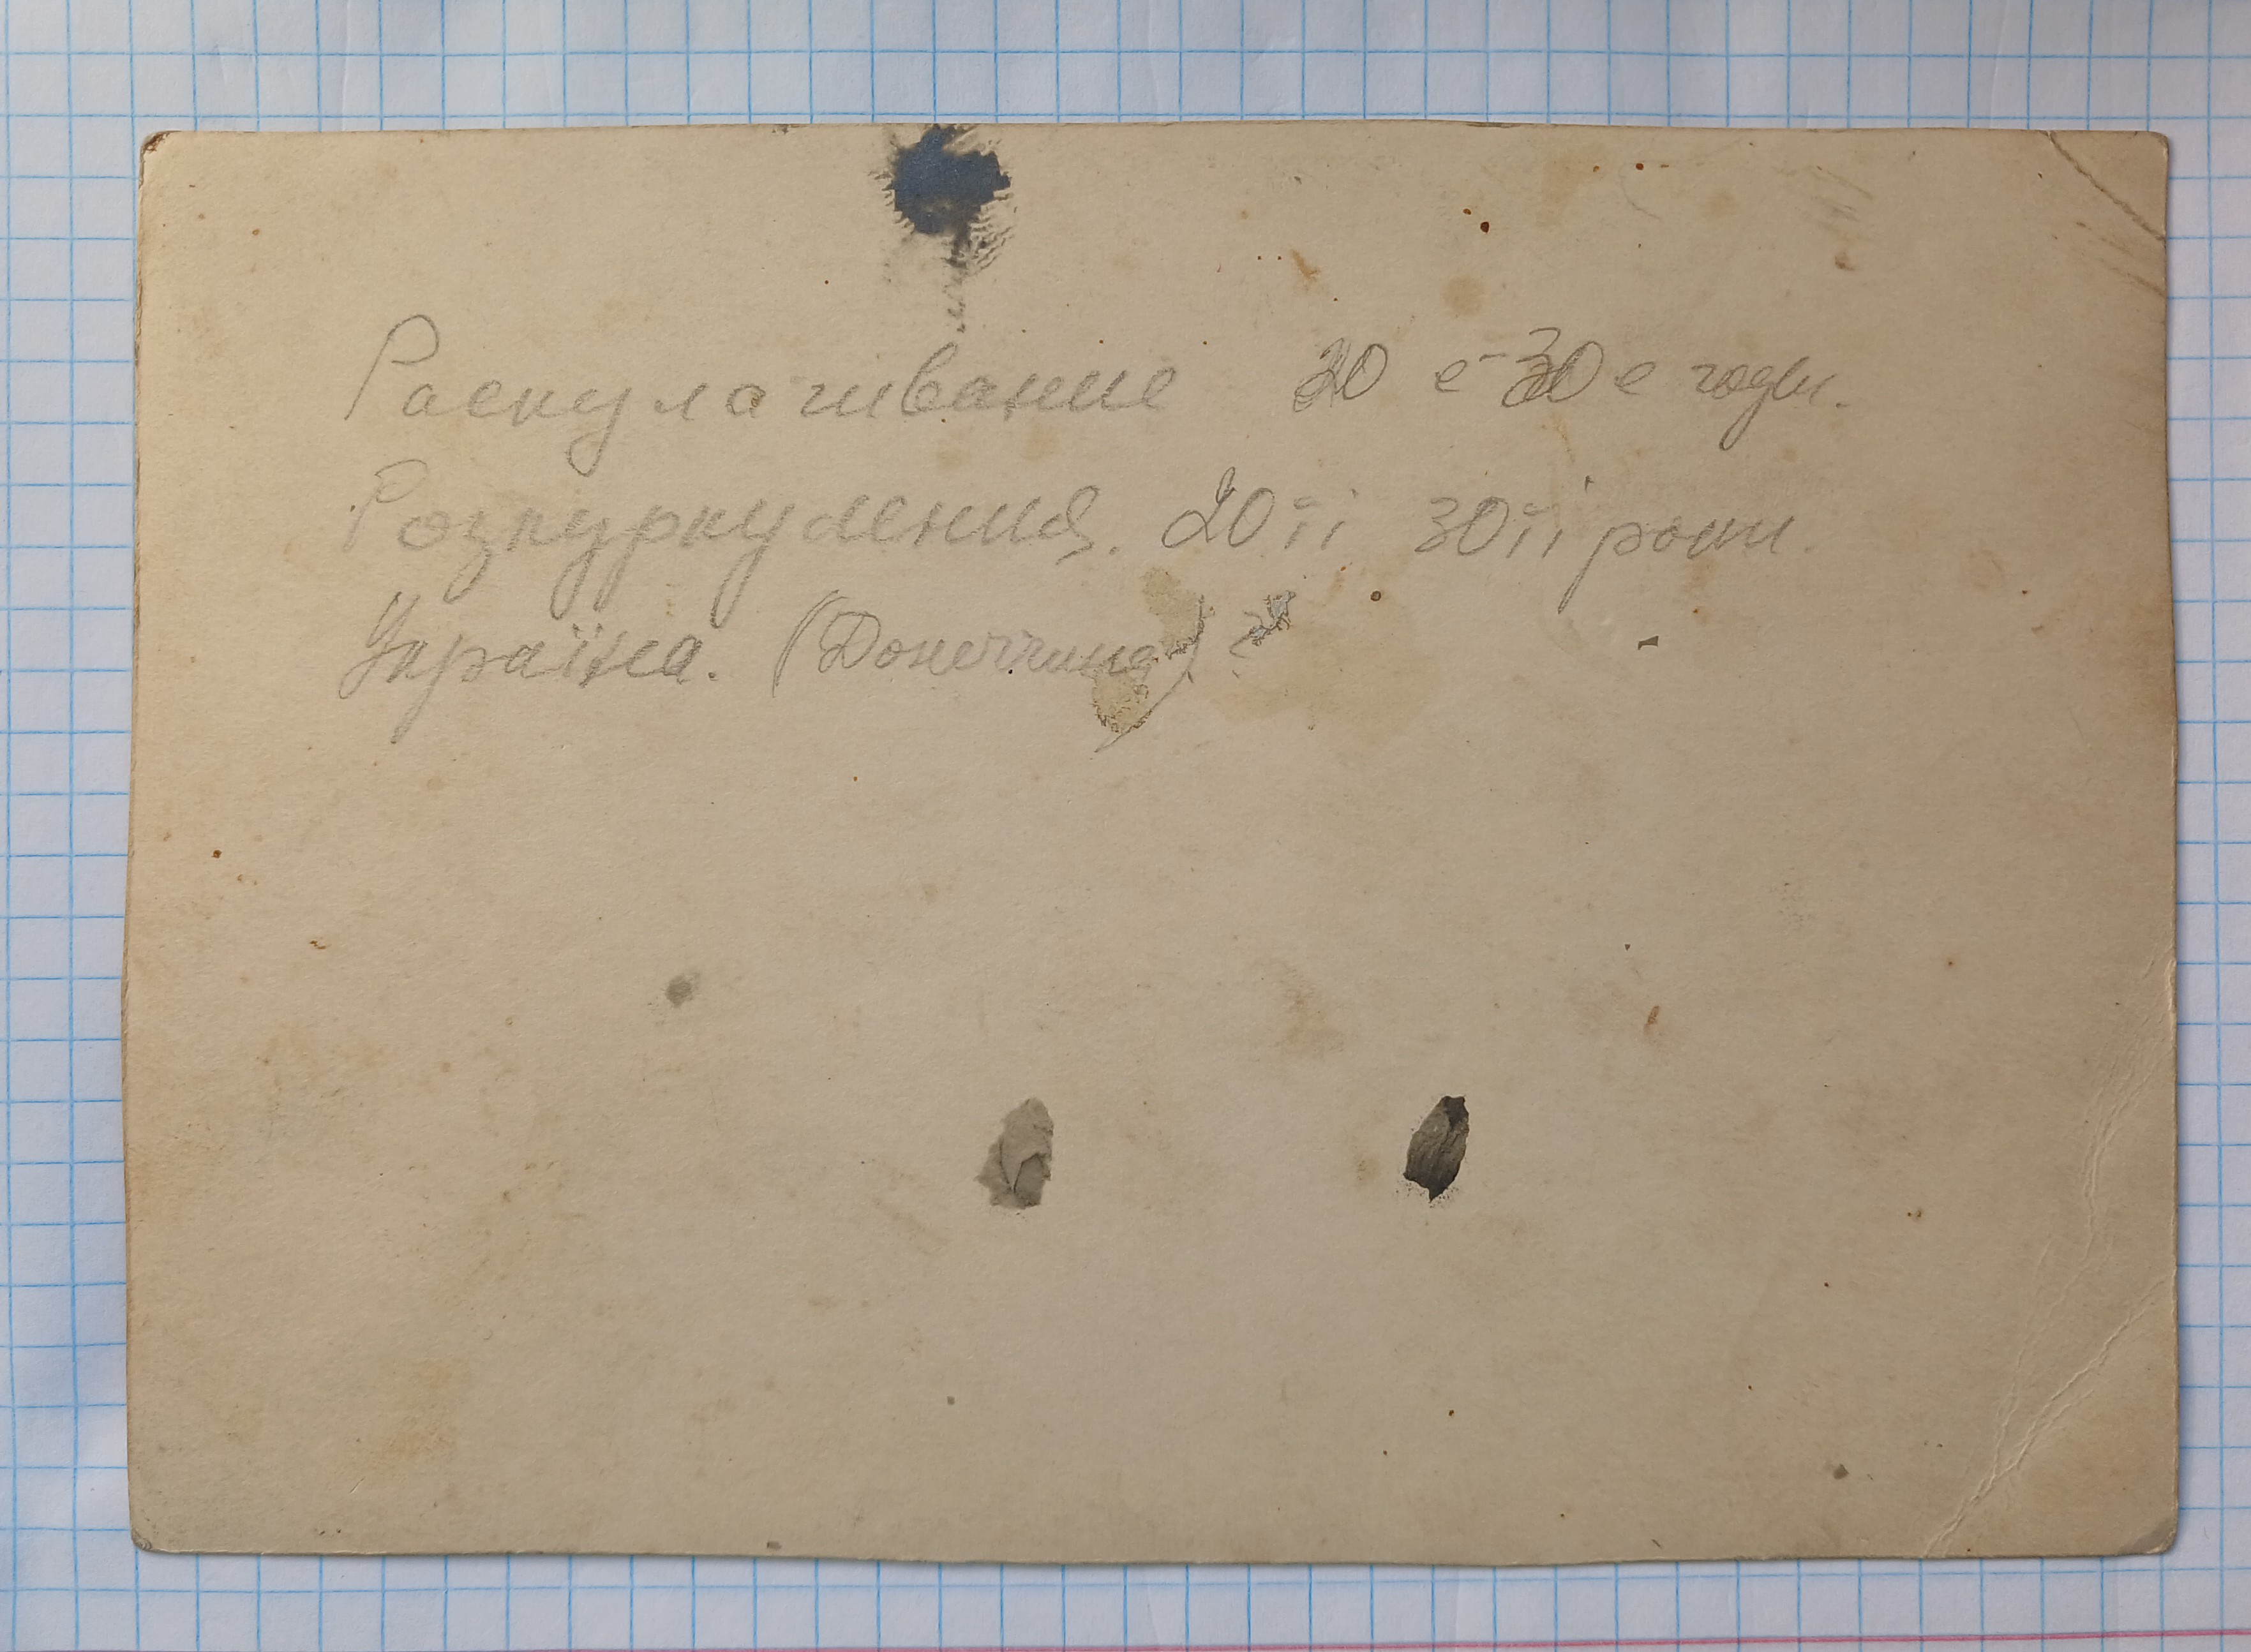 Раскулачивание 20 е-30 е годы.
Розкуркулення. 20ії 30ії роки.
Україна. (Донеччина) ?